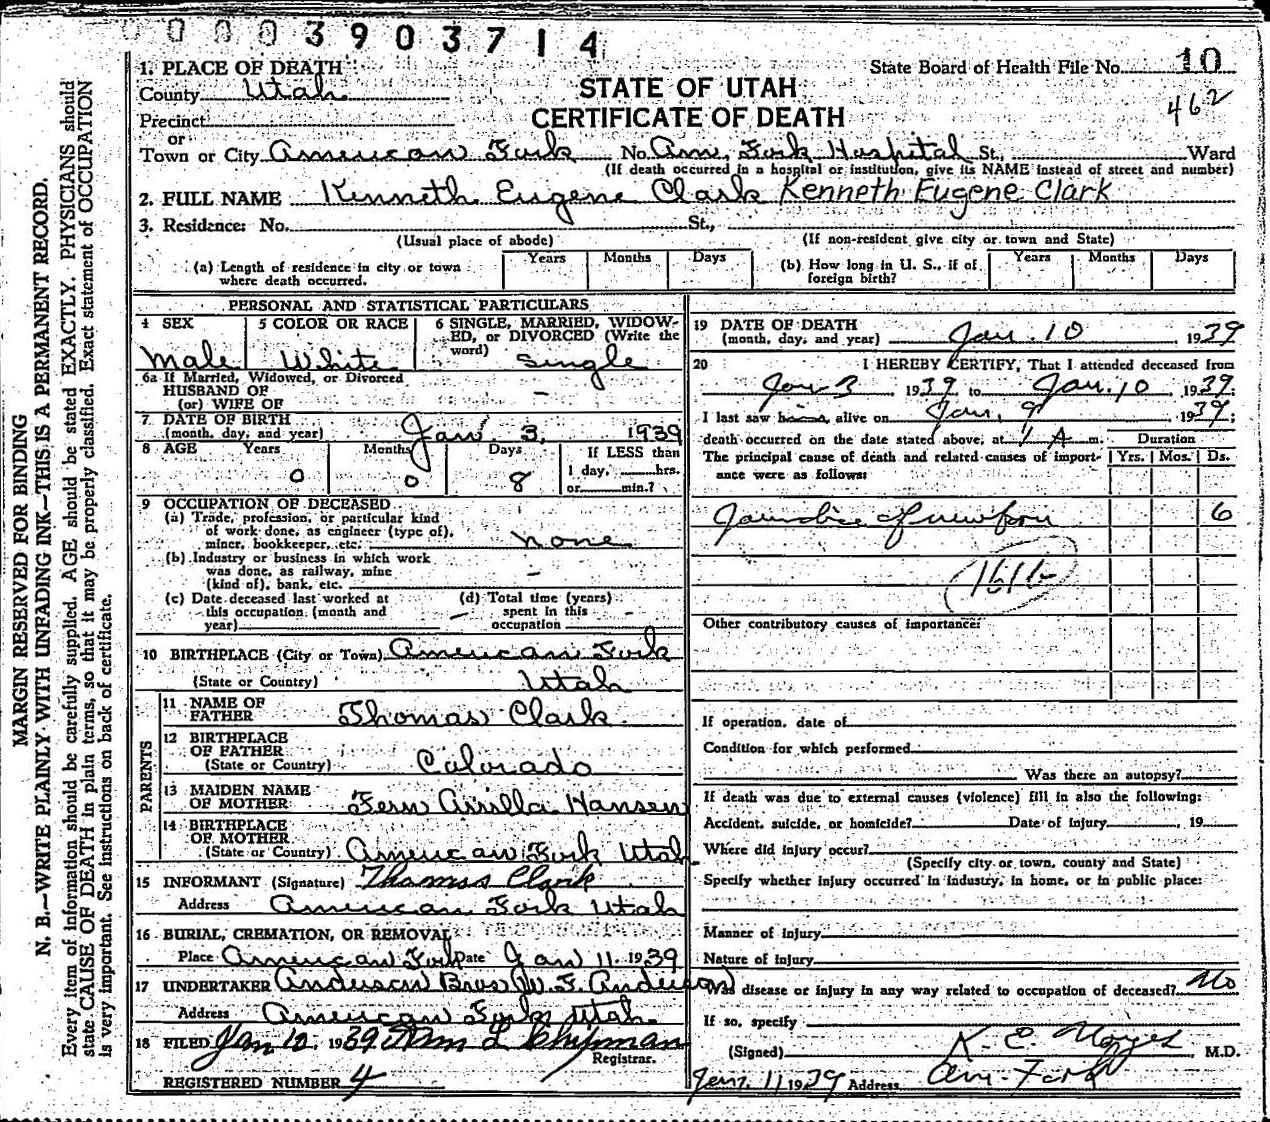 00003903714
1. PLACE OF DEATH
State Board of Health File No. 10
County Utah
STATE OF UTAH
462
Precinct
CERTIFICATE OF DEATH
or
Town or City American Fork No. Am. Fork Hospital St., Ward
(If death occurred in a hospital or institution, give its NAME instead of street and number)
2. FULL NAME Kenneth Eugene Clark Kenneth Eugene Clark
3. Residence: No. St.,
(Usual place of abode) (If non-resident give city or town and State)
(a) Length of residence in city or town where death occurred. Years Months Days
(b) How long in U. S., if of foreign birth? Years Months Days
PERSONAL AND STATISTICAL PARTICULARS
4 SEX
Male
5 COLOR OR RACE
White
6 SINGLE, MARRIED, WIDOW-
ED, or DIVORCED (Write the
word) Single
6a If Married, Widowed, or Divorced
HUSBAND OF
(or) WIFE OF -
7 DATE OF BIRTH
(month, day, and year) Jan 3, 1939
8 AGE Years Months Days If LESS than
1 day, hrs.
0 0 8 or min.?
9 OCCUPATION OF DECEASED
(a) Trade, profession, or particular kind
of work done, as engineer (type of),
miner, bookkeeper, etc. none
(b) Industry or business in which work
was done, as railway, mine
(kind of), bank, etc. -
(c) Date deceased last worked at
this occupation (month and
year) -
(d) Total time (years)
spent in this
occupation -
10 BIRTHPLACE (City or Town) American Fork
(State or Country) Utah
PARENTS
11 NAME OF
FATHER Thomas Clark
12 BIRTHPLACE
OF FATHER
(State or Country) Colorado
13 MAIDEN NAME
OF MOTHER Fern Arrilla Hansen
14 BIRTHPLACE
OF MOTHER
(State or Country) American Fork Utah
15 INFORMANT (Signature) Thomas Clark
Address American Fork Utah
16 BURIAL, CREMATION, OR REMOVAL
Place American Fork Date Jan 11, 1939
17 UNDERTAKER Anderson Bros W. F. Anderson
Address American Fork Utah
18 FILED Jan 10, 1939 Wm L Chipman
Registrar.
REGISTERED NUMBER 4
19 DATE OF DEATH
(month, day, and year) Jan. 10, 1939
20 I HEREBY CERTIFY, That I attended deceased from
Jan 3 1939 to Jan. 10 1939;
I last saw him alive on Jan. 9 1939;
death occurred on the date stated above, at 11 A m. Duration
The principal cause of death and related causes of import- Yrs. Mos. Ds.
ance were as follows:
Jaundice of newborn 6
Other contributory causes of importance:
If operation, date of
Condition for which performed
Was there an autopsy?
If death was due to external causes (violence) fill in also the following:
Accident, suicide, or homicide? Date of injury , 19
Where did injury occur?
(Specify city or town, county and State)
Specify whether injury occurred in industry, in home, or in public place:
Manner of injury
Nature of injury
Was disease or injury in any way related to occupation of deceased? No
If so, specify
(Signed) K. E. Noyes, M.D.
Jan. 11, 1939 Address Am. Fork
MARGIN RESERVED FOR BINDING
N. B.—WRITE PLAINLY WITH UNFADING INK—THIS IS A PERMANENT RECORD.
Every item of information should be carefully supplied. AGE should be stated EXACTLY. PHYSICIANS should
state CAUSE OF DEATH in plain terms, so that it may be properly classified. Exact statement of OCCUPATION
is very important. See instructions on back of certificate.